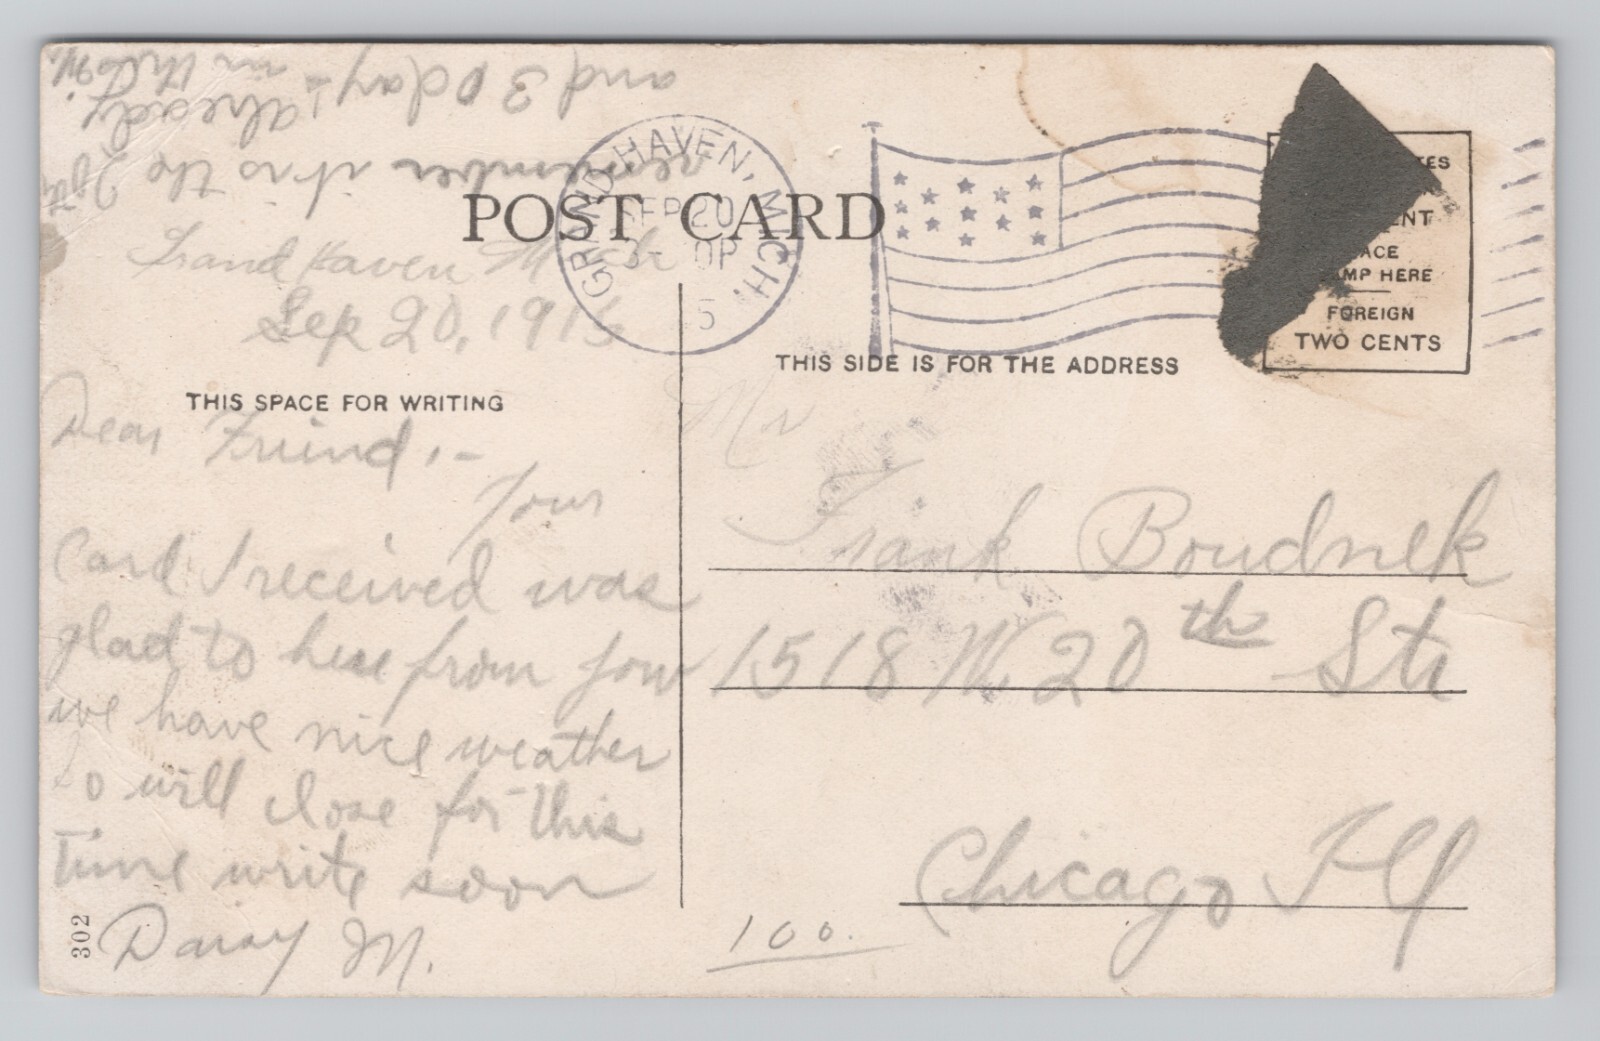 remember it is the 20th
already
and 30 days in this M.
POST CARD
GRAND HAVEN, MICH.
SEP 20
3- 0P
5
Grand Haven Mich
Sep 20, 1915
THIS SPACE FOR WRITING
Dear Friend,-
Your
Card I received was
glad to hear from you
we have nice weather
So will close for this
time write soon
Daisy M.
302
TES
ENT
ACE
AMP HERE
FOREIGN
TWO CENTS
THIS SIDE IS FOR THE ADDRESS
Mr
Frank Boudnek
1518 W. 20th Str
Chicago Ill
100.